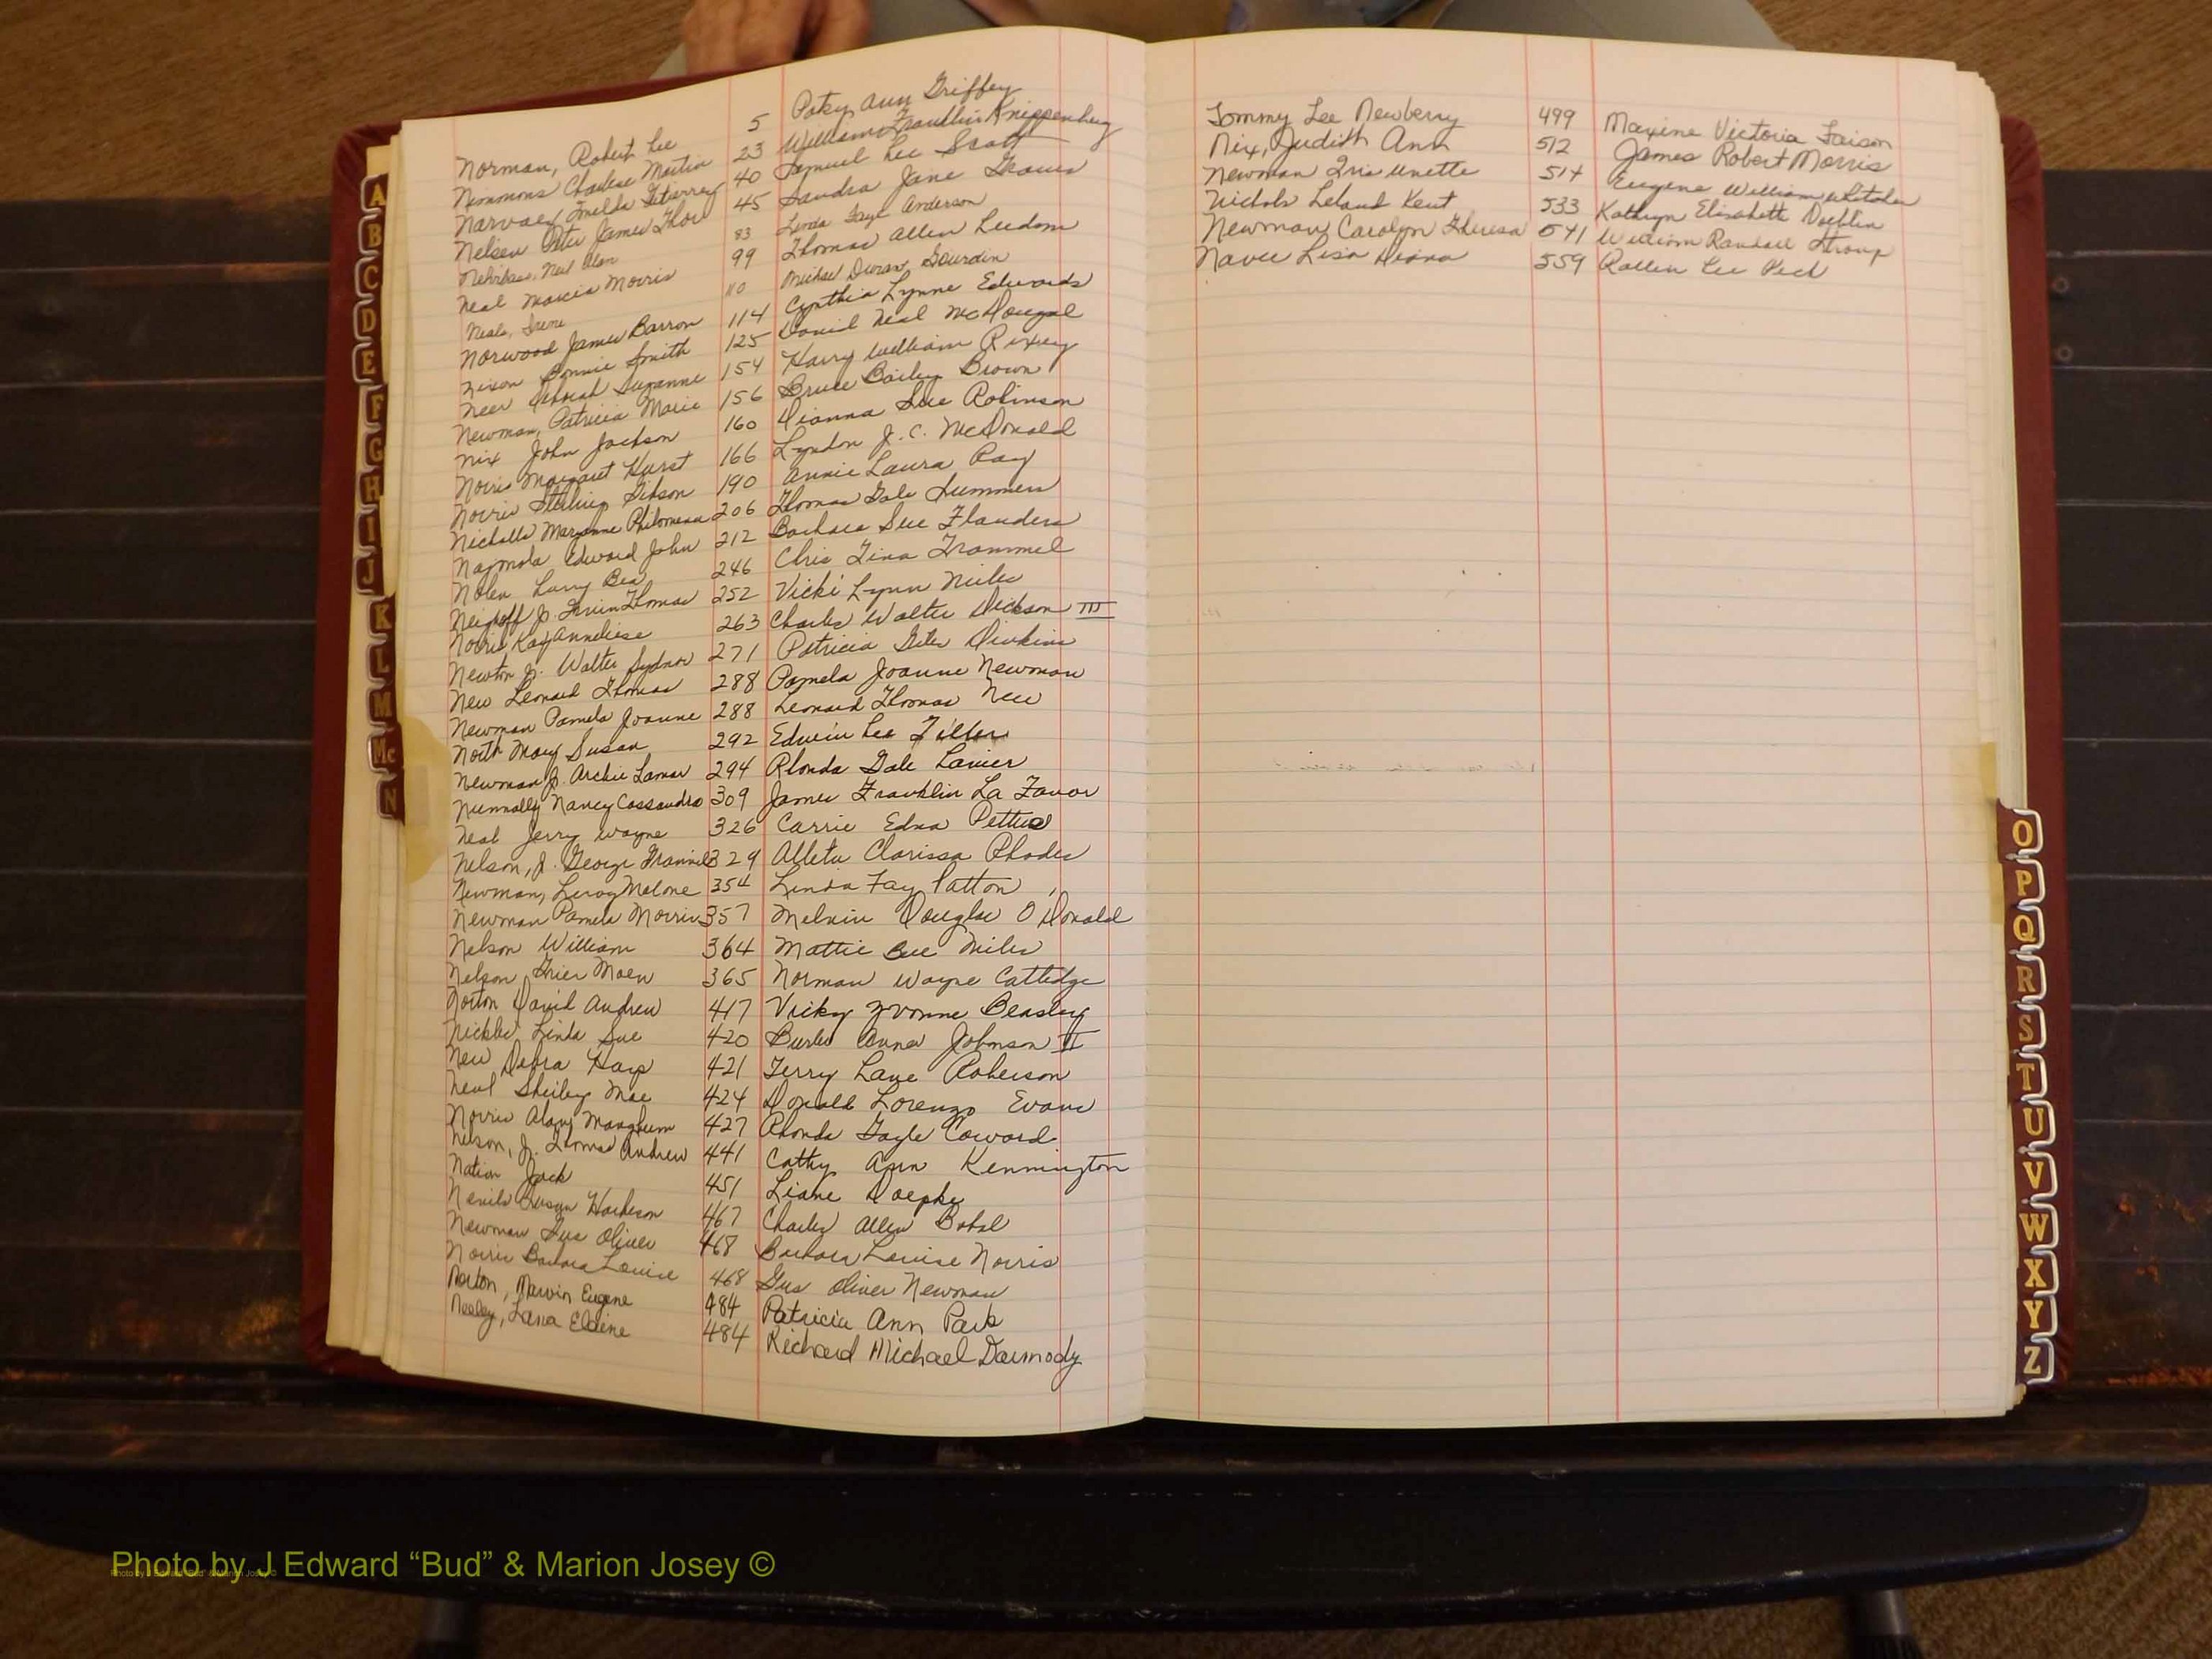 Norman, Robert Lee 5 Patsy Ann Griffey
Nimmons Charlese Martin 23 William Franklin Knippenberg
Narvaez Imelda Gutierrez 40 Samuel Lee Scott
Nelsen Peter James Thor 45 Sandra Jane Graves
Neil Alan 83 Linda Faye Anderson
Neal Marcia Morris 99 Thomas Allen Leedom
Neals, Irene 110 Michael Duran Gourdin
Norwood James Barron 114 Cynthia Lynne Edwards
Nixon Bonnie Smith 125 David Neal McDougal
Neer Deborah Suzanne 154 Harry William Rixey
Newman, Patricia Marie 156 Bruce Bailey Brown
Nix John Jackson 160 Dianna Sue Robinson
Norris Margaret Hurst 166 Lyndon J. C. McDonald
Norris Sterling Gibson 190 Annie Laura Ray
Nicholls Maryanne Philomena 206 Thomas Gale Summers
Edward John 212 Barbara Sue Flanders
Nolen Larry Bea 246 Chris Tina Trammel
Jr. Irvin Thomas 252 Vicki Lynn Niles
Norris Kay Anneliese 263 Charles Walter Dickson III
Newton Jr. Walter Sydnor 271 Patricia Giles
New Leonard Thomas 288 Pamela Joanne Newman
Newman Pamela Joanne 288 Leonard Thomas New
North Mary Susan 292 Edwin Lee Tiller
Newman Jr. Archie Lamar 294 Rhonda Gale Lanier
Nunnally Nancy Cassandra 309 James Franklin La Favor
Neal Jerry Wayne 326 Carrie Edna Pettus
Nelson, Jr. George 329 Alleta Clarissa Rhodes
Newman, Leroy Malone 354 Linda Fay Patton
Newman Pamela Morris 357 Melvin Douglas O'Donald
Nelson William 364 Mattie Bee Miles
Nelson Grier Moen 365 Norman Wayne Catledge
Norton David Andrew 417 Vicky Yvonne Beasley
Nickles Linda Sue 420 Johnson II
New Debra Hays 421 Terry Lane Roberson
Neal Shirley Mae 424 Donald Lorenzo Evans
Norris Alan Mangham 427 Rhonda Gayle Coward
Nelson, Jr. Thomas Andrew 441 Cathy Ann Kennington
Nation Jack 451 Liane Doepke
467 Charles Allen
Newman Gus Oliver 468 Barbara Louise Norris
Norris Barbara Louise 468 Gus Oliver Newman
Norton, Marvin Eugene 484 Patricia Ann Park
Neeley, Lana Elaine 484 Richard Michael Darmody
Tommy Lee Newberry 499 Maxine Victoria Faison
Nix, Judith Ann 512 James Robert Morris
Newman Iris Unette 514 Eugene William
Nichols Leland Kent 533 Kathryn Elizabeth
Newman Carolyn Theresa 541 William Randall Stroup
Lisa Diana 559 Lee Peck
A
B
C
D
E
F
G
H
I
J
K
L
M
Mc
N
O
P
Q
R
S
T
U
V
W
X
Y
Z
Photo by J Edward “Bud” & Marion Josey ©
Photo by J Edward “Bud” & Marion Josey ©